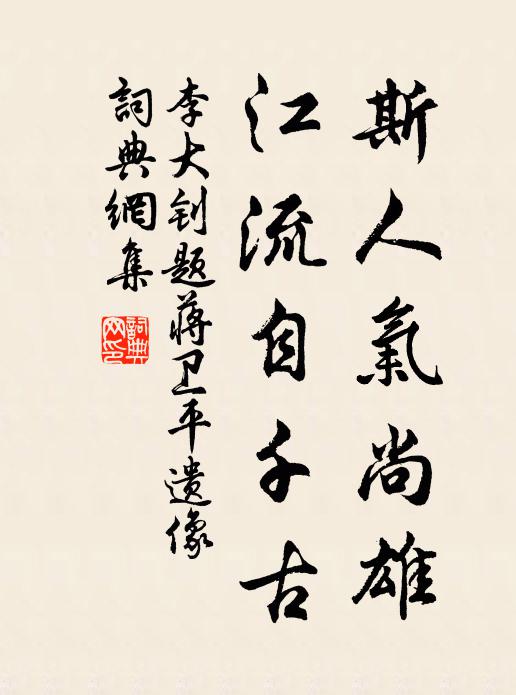 斯人氣尚雄
江流自千古
李大钊题蔣卫平遗像
詞典網集
詞典
网印